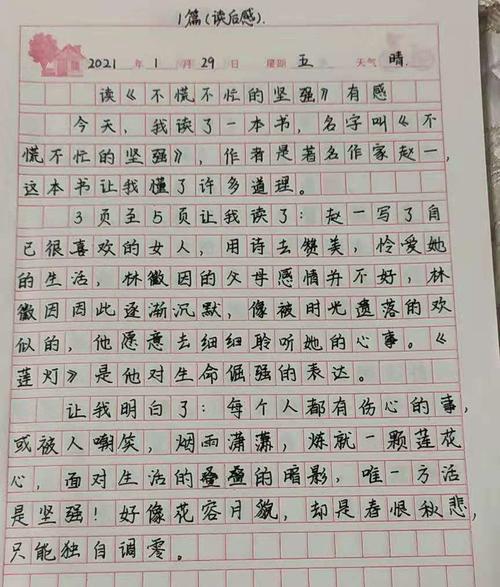 1篇(读后感).
2021年1月29日 星期五 天气晴.
读《不慌不忙的坚强》有感
今天，我读了一本书，名字叫《不
慌不忙的坚强》，作者是著名作家赵一，
这本书让我懂了许多道理。
3页至5页让我读了：赵一写了自
已很喜欢的女人，用诗去赞美，怜爱她
的生活，林徽因的父母感情并不好，林
徽因因此逐渐沉默，像被时光遗落的欢
似的，他愿意去细细聆听她的心事。《
莲灯》是他对生命倔强的表达。
让我明白了：每个人都有伤心的事，
或被人嘲笑，烟雨潇潇，炼就一颗莲花
心，面对生活的叠叠的暗影，唯一方活
是坚强！好像花容月貌，却是春恨秋悲，
只能独自调零。